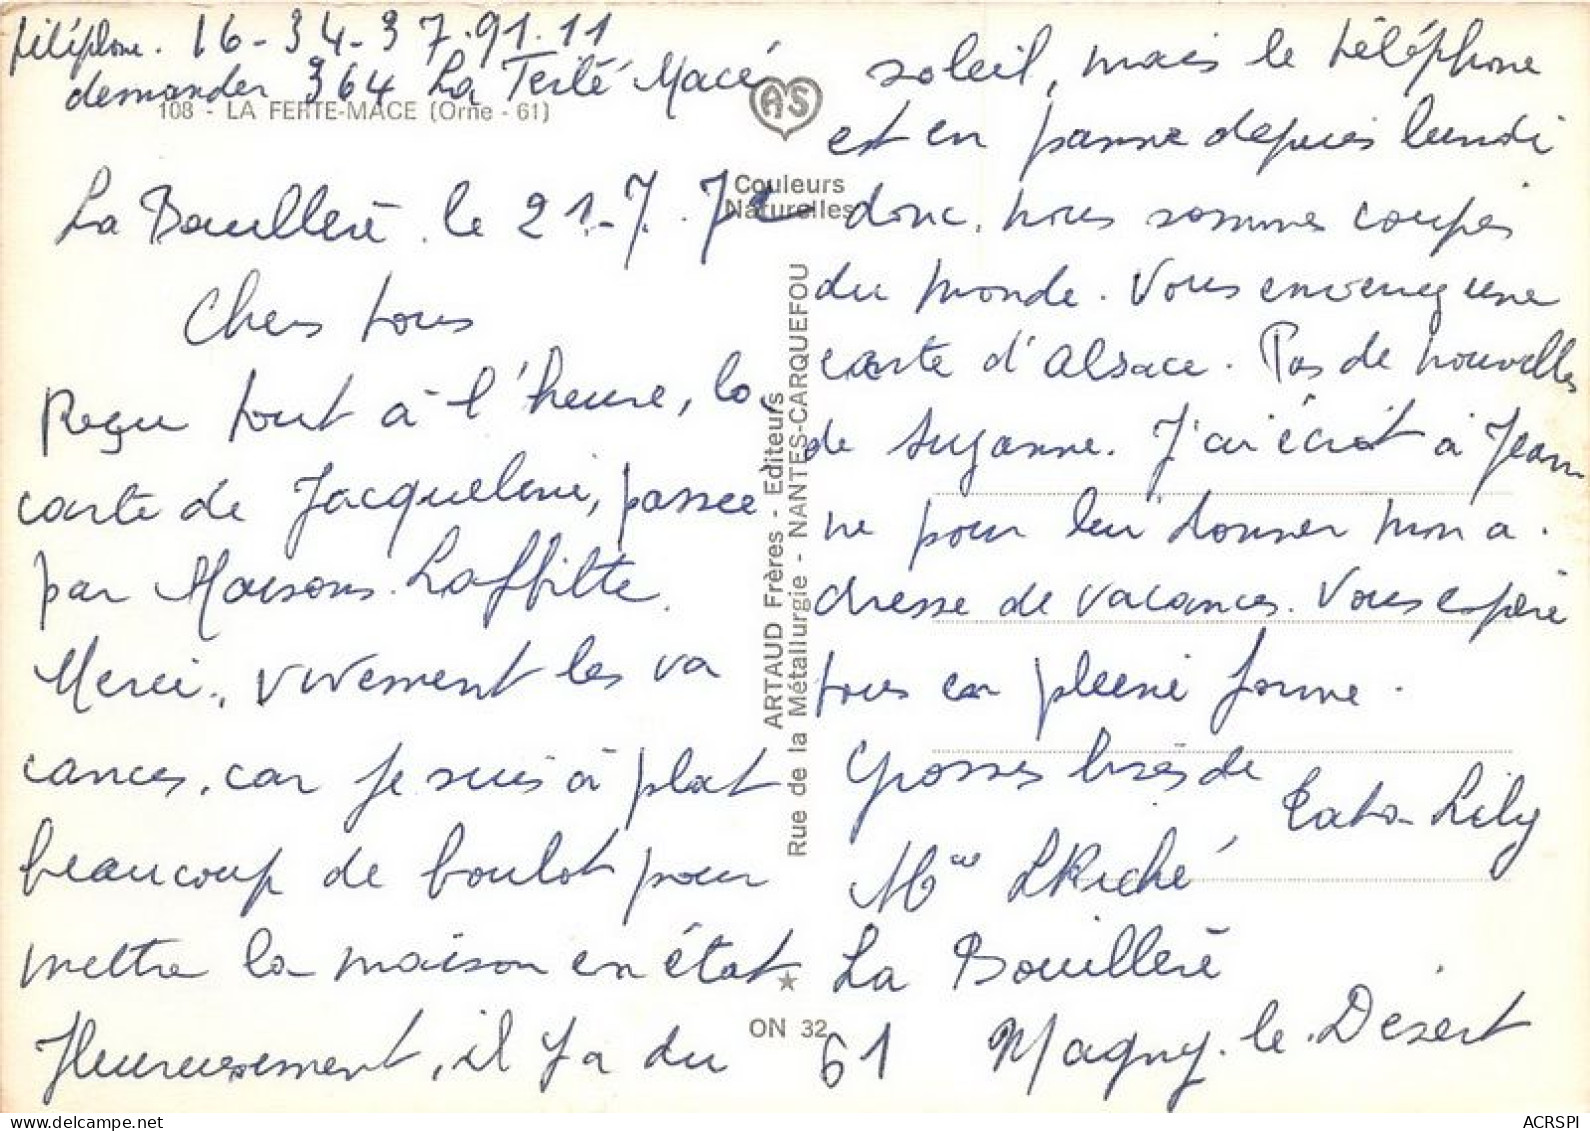 téléphone. 16-34-37.91.11
demander 364 La Ferté Macé
108 - LA FERTE-MACE (Orne - 61)
La Bouillère. le 21-7.72
Chers tous
Reçu tout à l'heure, la
carte de Jacqueline, passée
par Maisons-Laffitte.
Merci., vivement les va
cances, car je suis à plat
beaucoup de boulot pour
mettre la maison en état
Heureusement, il y a du
AS
Couleurs
Naturelles
ARTAUD Frères - Editeurs
Rue de la Métallurgie - NANTES-CARQUEFOU
ON 32
soleil, mais le téléphone
est en panne depuis lundi
donc, nous sommes coupés
du monde. Vous envoieng une
carte d'Alsace. Pas de nouvelles
de Suzanne. J'ai écrit à Jean
ne pour leu donner mon a.
dresse de vacances. Vous espère
tous en pleine forme.
Grosses bises de
Tata Lily
Mme LRiché
La Bouillère
61 Magny-le-Désert
ACRSPI